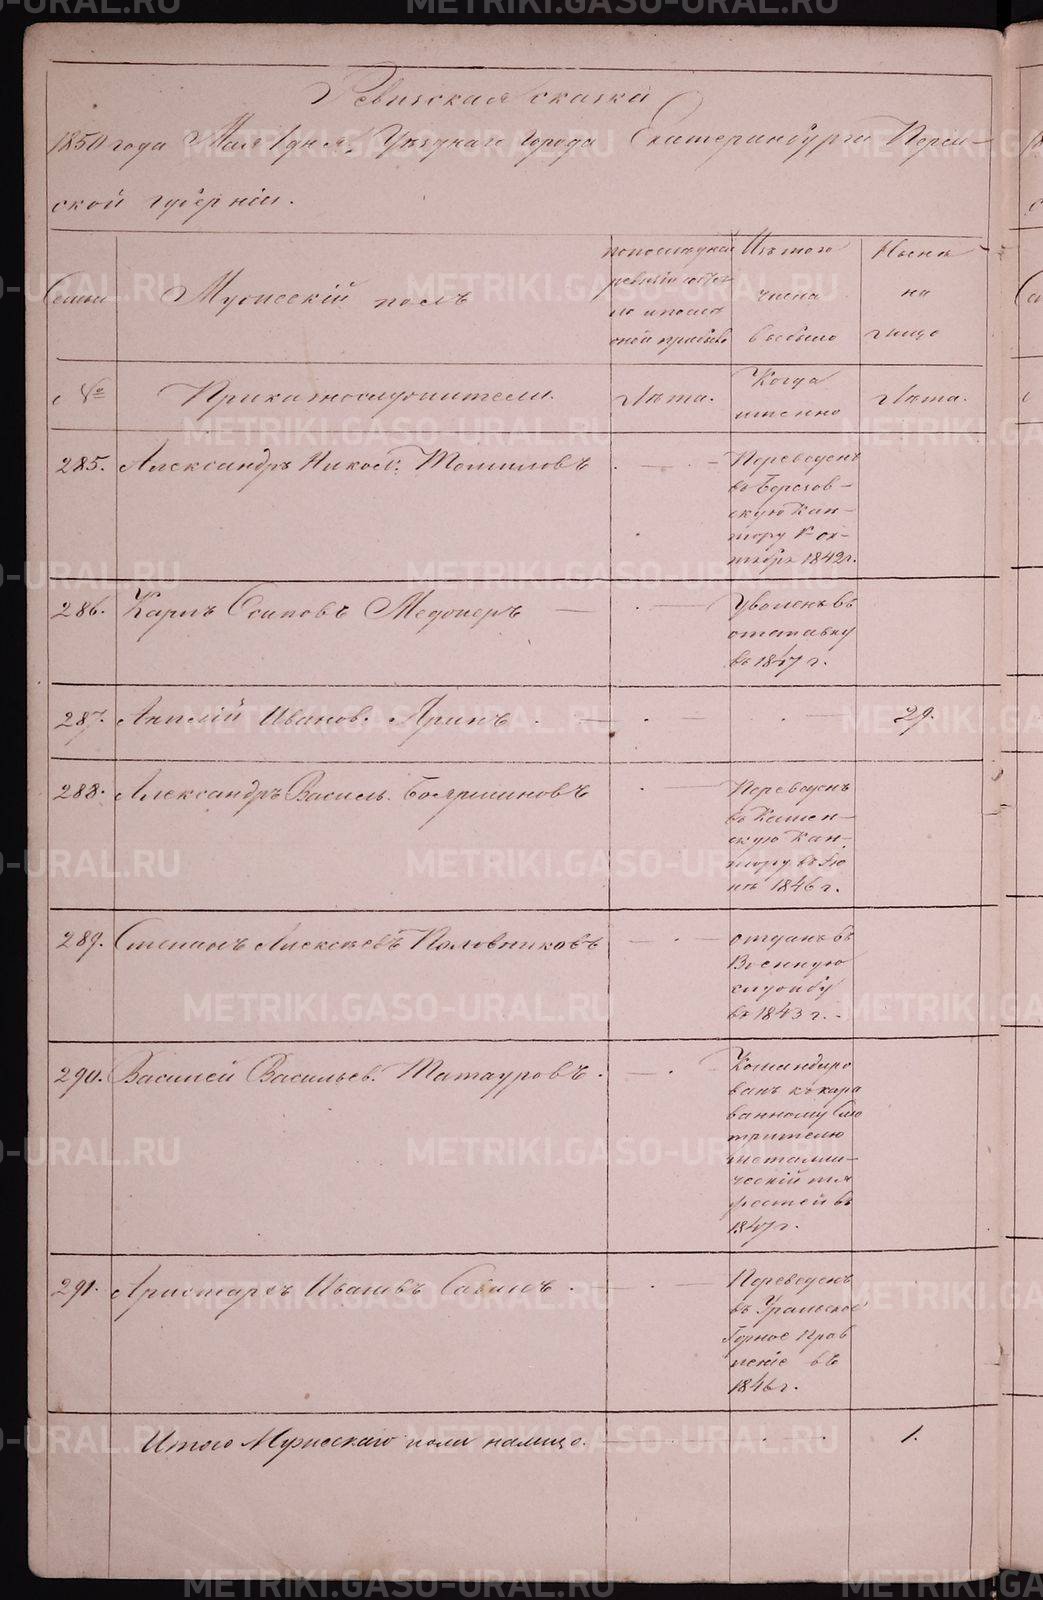 Ревизская сказка
1850 года Мая 1 дня, Уезднаго города Екатеринбурга Перм-
ской губернiи.
Семьи
Мужескiй полъ
по последней
ревизiи состоя
ло и после
оной прибыло
Изъ того
числа
выбыло
Ныне
на
лицо
№
Приказнослужители.
Лета.
Когда
именно
Лета.
285. Александръ Никол: Томиловъ
Переведенъ
въ Березов-
скую Кан-
тору 1го ок-
тября 1842 г.
286. Карлъ Осиповъ Медонеръ
Уволенъ въ
отставку
въ 1847 г.
287. Анплiй Иванов: Яринъ
29.
288. Александръ Василь. Бояршиновъ
Переведенъ
въ Камен-
скую Кан-
тору въ Iю
не 1846 г.
289. Степанъ Алексеевъ Половниковъ
отданъ въ
Военную
службу
въ 1843 г.
290. Василей Васильев. Татауровъ.
Командиро
ванъ къ кара
ванному Смо
трителю
металли-
ческiй тя
жостей въ
1847 г.
291. Аристархъ Ивановъ Савинъ.
Переведенъ
въ Уральское
Горное Прав
ленiе въ
1846 г.
Итого Мужескаго пола налицо.
1.
METRIKI.GASO-URAL.RU